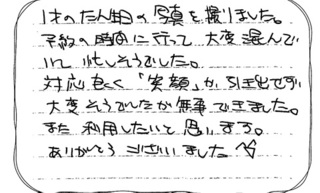 1才のたん生日の写真を撮りました。
予約の時間に行って大変混んで
いて忙しそうでした。
対応も 「笑顔」が引き出せず
大変そうでしたが無事できました。
また利用したいと思います。
ありがとうございました